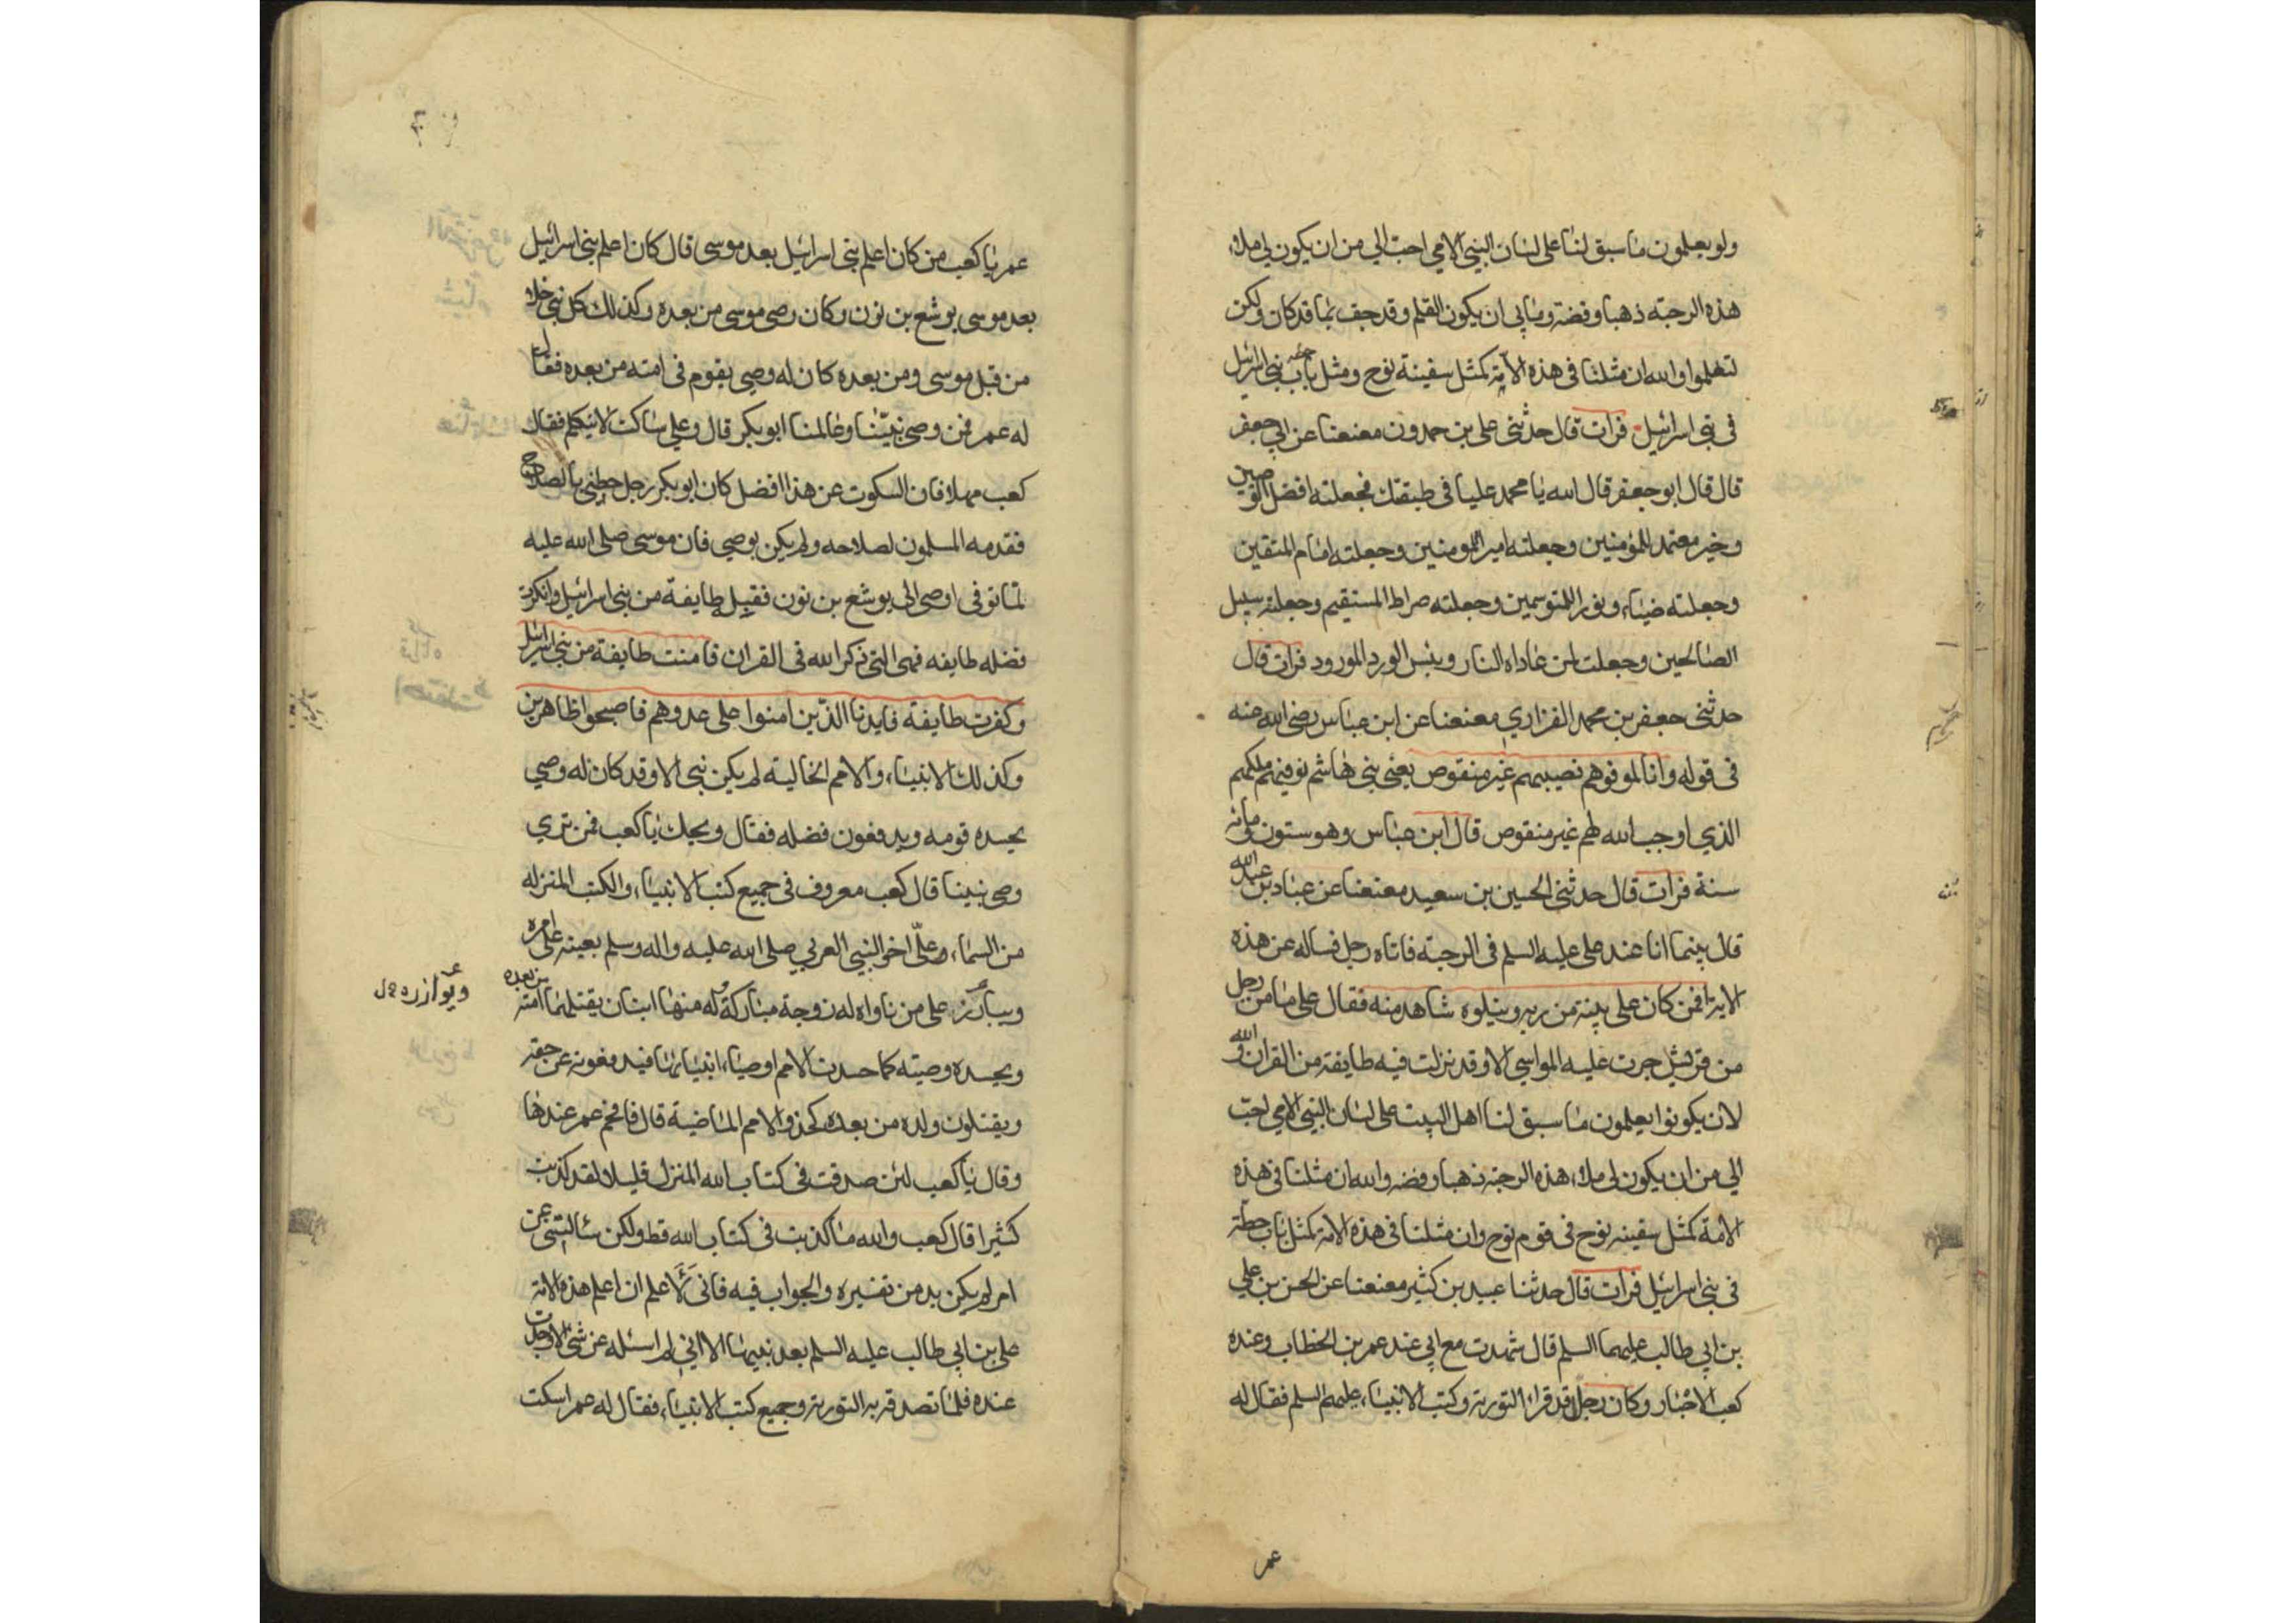 ولو يعلمون ما سبق لنا على لسان النبي الامي احب الي من ان يكون لي ملاء
هذه الرحبة ذهبا وفضة وما بي ان يكون القلم وقد جف بما قد كان ولكن
لتعلموا والله ان مثلنا في هذه الامة كمثل سفينة نوح ومثل باب حطه بني اسرائيل
في بني اسرائيل فرات قال حدثنى على بن حمدون معنعنا عن ابي جعفر
قال قال ابو جعفر قال الله يا محمد عليا في طبقتك فجعلته افضل الوصيين
وخير معتمد للمؤمنين وجعلته امير المومنين وجعلته امام المتقين
وجعلته ضياء ونور المتوسمين وجعلته صراط المستقيم وجعلته سبيل
الصالحين وجعلت لمن عاداه النار وبئس الورد المورود فرات قال
حدثنى جعفر بن محمد الفزاري معنعنا عن ابن عباس رضى الله عنه
في قوله وانا لموفوهم نصيبهم غير منقوص يعنى بني هاشم نوفيهم ملكهم
الذي اوجب الله لهم غير منقوص قال ابن عباس وهو ستون ومائة
سنة فرات قال حدثنى الحسين بن سعيد معنعنا عن عباد بن عبد الله
قال بينما انا عند على عليه السلم في الرحبة فاتاه رجل فساله عن هذه
الاية افمن كان على بينة من ربه ويتلوه شاهد منه فقال على ما من رجل
من قريش جرت عليه المواسي الا وقد نزلت فيه طايفة من القران والله
لان يكونوا يعلمون ما سبق لنا اهل البيت على لسان النبي الامي احب
الي من ان يكون لى ملاء هذه الرحبة ذهبا وفضه والله ان مثلنا في هذه
الامة كمثل سفينه نوح في قوم نوح وان مثلنا في هذه الامة كمثل باب حطة
في بني اسرائيل فرات قال حدثنا عبيد بن كثير معنعنا عن الحسن بن علي
بن ابي طالب عليهما السلم قال شهدت مع ابي عند عمر بن الخطاب وعنده
كعب الاحبار وكان رجل قد قرا التورية وكتب الانبياء عليهم السلم فقال له
عمر
عمر يا كعب من كان اعلم بني اسرائيل بعد موسى قال كان اعلم بني اسرائيل
بعد موسى يوشع بن نون وكان وصى موسى من بعده وكذلك كل نبي خلا
من قبل موسى ومن بعده كان له وصي يقوم في امته من بعده فقال
له عمر فمن وصى نبينا وعالمنا ابو بكر قال وعلي ساكت لا يتكلم فقال
كعب مهلا فان السكوت عن هذا افضل كان ابو بكر رجل حظي بالصلاح
فقدمه المسلمون لصلاحه ولم يكن بوصي فان موسى صلى الله عليه
لما توفى اوصى الى يوشع بن نون فقبله طايفة من بنى اسرائيل وانكرت
فضله طايفه فهى التي ذكر الله في القران فامنت طايفة من بني اسرائيل
وكفرت طايفة فايدنا الذين امنوا على عدوهم فاصبحوا ظاهرين
وكذلك الانبياء والامم الخالية لم يكن نبي الا وقد كان له وصي
يحسده قومه ويدفعون فضله فقال ويحك يا كعب فمن ترى
وصى نبينا قال كعب معروف في جميع كتب الانبياء والكتب المنزله
من السماء على اخو النبي العربي صلى الله عليه واله وسلم يعينه على امره
ويبارز على من ناواه له زوجة مباركة له منها ابنان يقتلهما امته من بعده
ويوازره
ويحسده وصيته كما حسدت الامم اوصياء انبيائها فيدفعونه عن حقه
ويقتلون ولده من بعده كحذو الامم الماضية قال فافحم عمر عندها
وقال يا كعب لئن صدقت في كتاب الله المنزل قليلا لقد كذبت
كثيرا قال كعب والله ما كذبت في كتاب الله قط ولكن سالتنى عن
امر لم يكن بد من تفسيره والجواب فيه فانى لاعلم ان اعلم هذه الامة
على بن ابي طالب عليه السلم بعد نبيها الا اني لم اسئله عن شئ الا وجدت
عنده علما تصدقه به التورية وجميع كتب الانبياء فقال له عمر اسكت